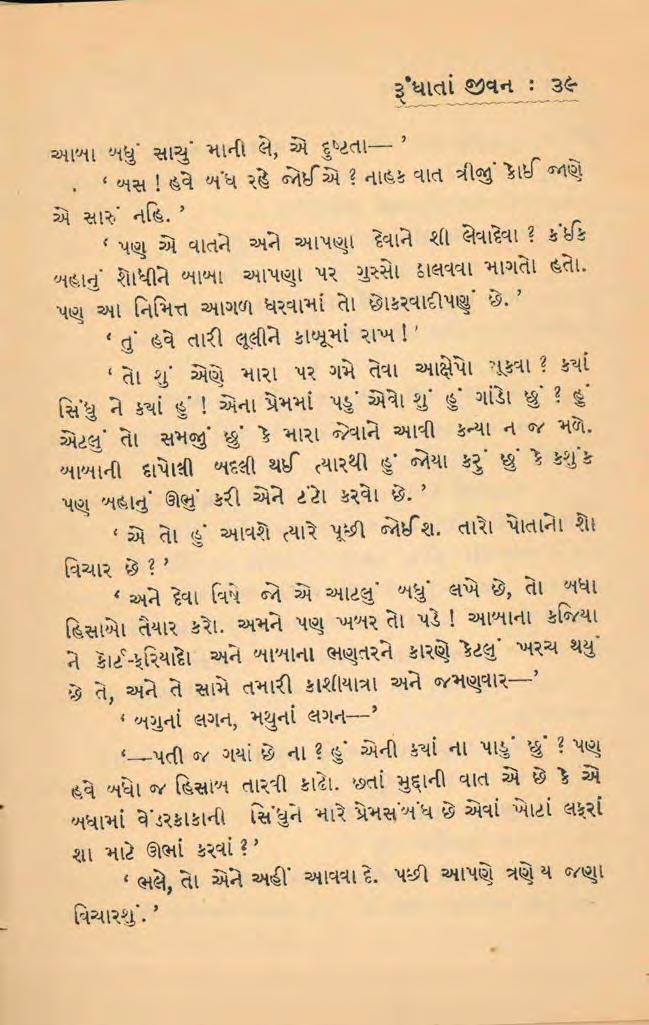 રૂંધાતાં જીવન : ૩૯
આબા બધું સાચું માની લે, એ દુષ્ટતા—’
‘ બસ ! હવે બંધ રહે જોઈએ ? નાહક વાત ત્રીજું કોઈ જાણે
એ સારું નહિ. ’
‘ પણ એ વાતને અને આપણા દેવાને શી લેવાદેવા ? કંઈક
બહાનું શોધીને બાબા આપણા પર ગુસ્સો ઠાલવવા માગતો હતો.
પણ આ નિમિત્ત આગળ ધરવામાં તો છોકરવાદીપણું છે. ’
‘ તું હવે તારી લૂલીને કાબૂમાં રાખ ! ’
‘ તો શું એણે મારા પર ગમે તેવા આક્ષેપો મૂકવા ? કયાં
સિંધુ ને કયાં હું ! એના પ્રેમમાં પડું એવો શું હું ગાંડો છું ? હું
એટલું તો સમજું છું કે મારા જેવાને આવી કન્યા ન જ મળે.
બાબાની દાપોલી બદલી થઈ ત્યારથી હું જોયા કરું છું કે કશુંક
પણ બહાનું ઊભું કરી એને ટંટો કરવો છે. ’
‘ એ તો હું આવશે ત્યારે પૂછી જોઈશ. તારો પોતાનો શો
વિચાર છે ? ’
‘ અને દેવા વિષે જો એ આટલું બધું લખે છે, તો બધા
હિસાબો તૈયાર કરો. અમને પણ ખબર તો પડે ! આબાના કજિયા
ને કોર્ટ-ફરિયાદો અને બાબાના ભણતરને કારણે કેટલું ખરચ થયું
છે તે, અને તે સામે તમારી કાશીયાત્રા અને જમણવાર—’
‘ બગુનાં લગન, મથુનાં લગન—’
‘—પતી જ ગયાં છે ના ? હું એની કયાં ના પાડું છું ? પણ
હવે બધો જ હિસાબ તારવી કાઢો. છતાં મુદ્દાની વાત એ છે કે એ
બધામાં વેંડરકાકાની સિંધુને મારે પ્રેમસંબંધ છે એવાં ખોટાં લફરાં
શા માટે ઊભાં કરવાં ? ’
‘ ભલે, તો એને અહીં આવવા દે. પછી આપણે ત્રણે ય જણા
વિચારશું. ’